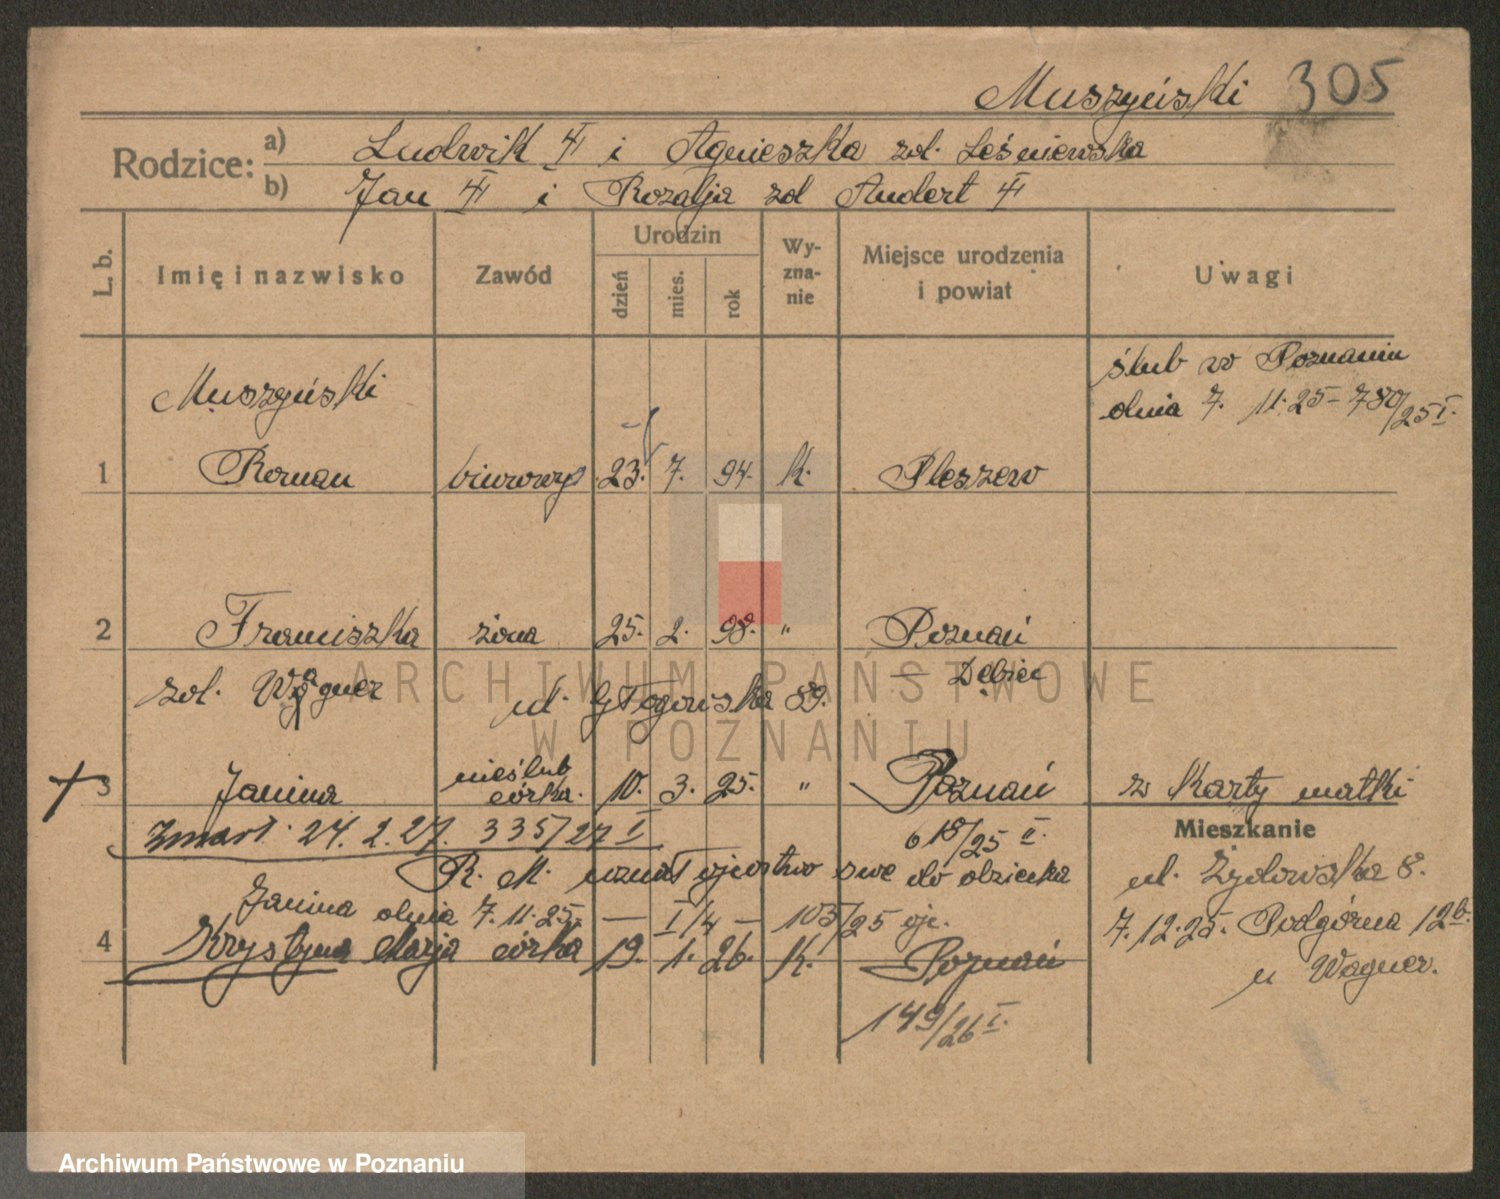 Muszyński 305
Rodzice:
a) Ludwik i Agnieszka zd. Leśniewska
b) Jan i Rozalja zd Andert
L. b.
Imię i nazwisko
Zawód
Urodzin
dzień
mies.
rok
Wy-
zna-
nie
Miejsce urodzenia
i powiat
Uwagi
ślub w Poznaniu
dnia 7. 11. 25 - 780/25 I.
Muszyński
1 Roman biurowy 23. 7. 94. K. Pleszew
2 Franciszka żona 25. 2. 98. " Poznań
zd. Wagner ul. Głogowska 89. — Dębiec
ARCHIWUM PAŃSTWOWE
W POZNANIU
nieślub
3 Janina córka. 10. 3. 25. " Poznań z karty matki
zmarł. 24. 2. 27. 335/27 I 618/25 II.
Mieszkanie
R. M. uznał ojcostwo swe do dziecka
ul. Żydowska 8.
Janina dnia 7. 11. 25. — I/4 — 105/25 ojc.
7. 12. 25. Podgórna 12b.
4 Krystyna Marja córka 19. 1. 26. K. Poznań
u Wagner.
149/26 I.
Archiwum Państwowe w Poznaniu